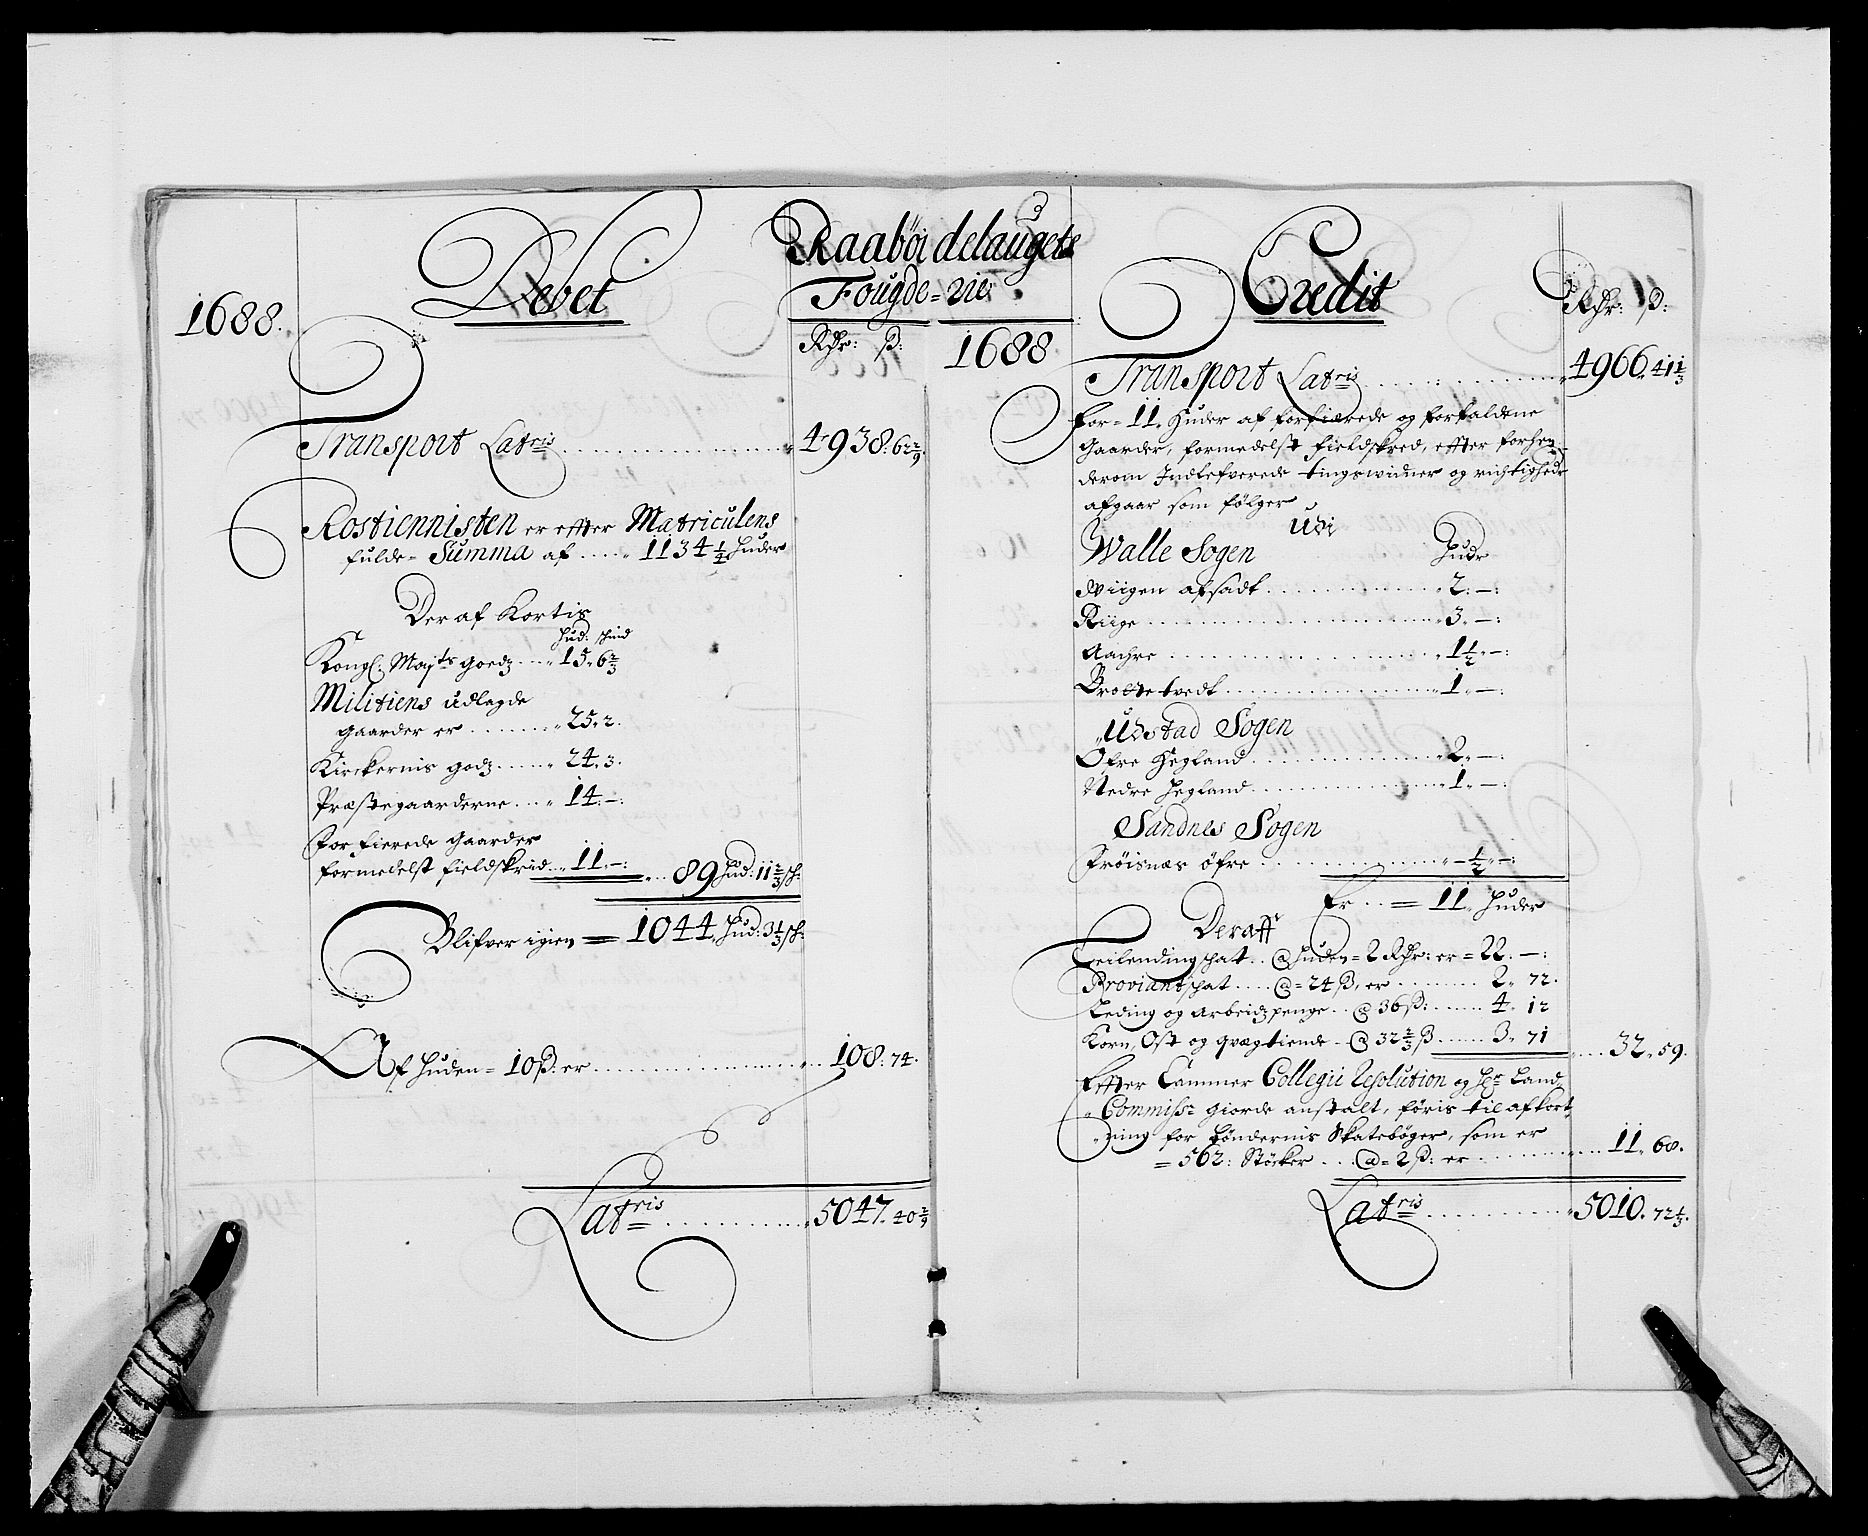 Raabøidelaugets
Fougde=rie
1688.
Debet
Rdr: ß:
Transport Latris 4938. 62 2/9.
Rostiennisten er effter Matriculens
fulde= Summa af 1134 1/4 huder
Deraf Kortis
hud: skind
Kongl: Mayts goedz 15. 6 2/3
Militiens udlagde
gaarder er 25. 2.
Kirckernis godz 24. 3.
Præstegaarderne 14. —:
Forfierede gaarder
formedelst fieldskred 11. —: 89 hud: 11 2/3 sk:
Blifver igien = 1044. hud: 3 1/3 sk:
Af huden = 10 ß: er 108. 74.
Latris 5047. 40 2/9
1688
Credit
Rdr: ß:
Transport Latris 4966. 41 1/3
For = 11. Huder af forfierede og forfaldene
Gaarder, formedelst fieldskred, effter forhen
derom Indlefverede tingswidner og richtighed
afgaar som følger
Udi
Walle Sogen hudr
Wiigen afsadt 2. —:
Riige 3. —:
Aachre 1 1/2. —:
Brottetvedt 1. —:
Udstad Sogen
Øfre Hegland 2. —:
Nedre Hegland 1. —:
Sandnes Sogen
Frøisnæs øfre — 1/2. —:
Er = 11. huder
Deraff
Leilendingschatt @ huden = 2 Rdr: er = 22. —:
Proviantschat @ = 24 ß, er 2. 72.
Leding og Arbeidzpenge @ 36 ß: 4. 12
Korn, Ost og qvægtiende @ 32 2/3 ß 3. 71 32. 59.
Effter Cammer Collegii Resolution og Hr Land
Commiss: giorde anstalt, føris til afkort
ning for bøndernis Skatebøger, som er
= 562: Støcker @ = 2 ß: er 11. 68.
Latris 5010. 72 1/3.